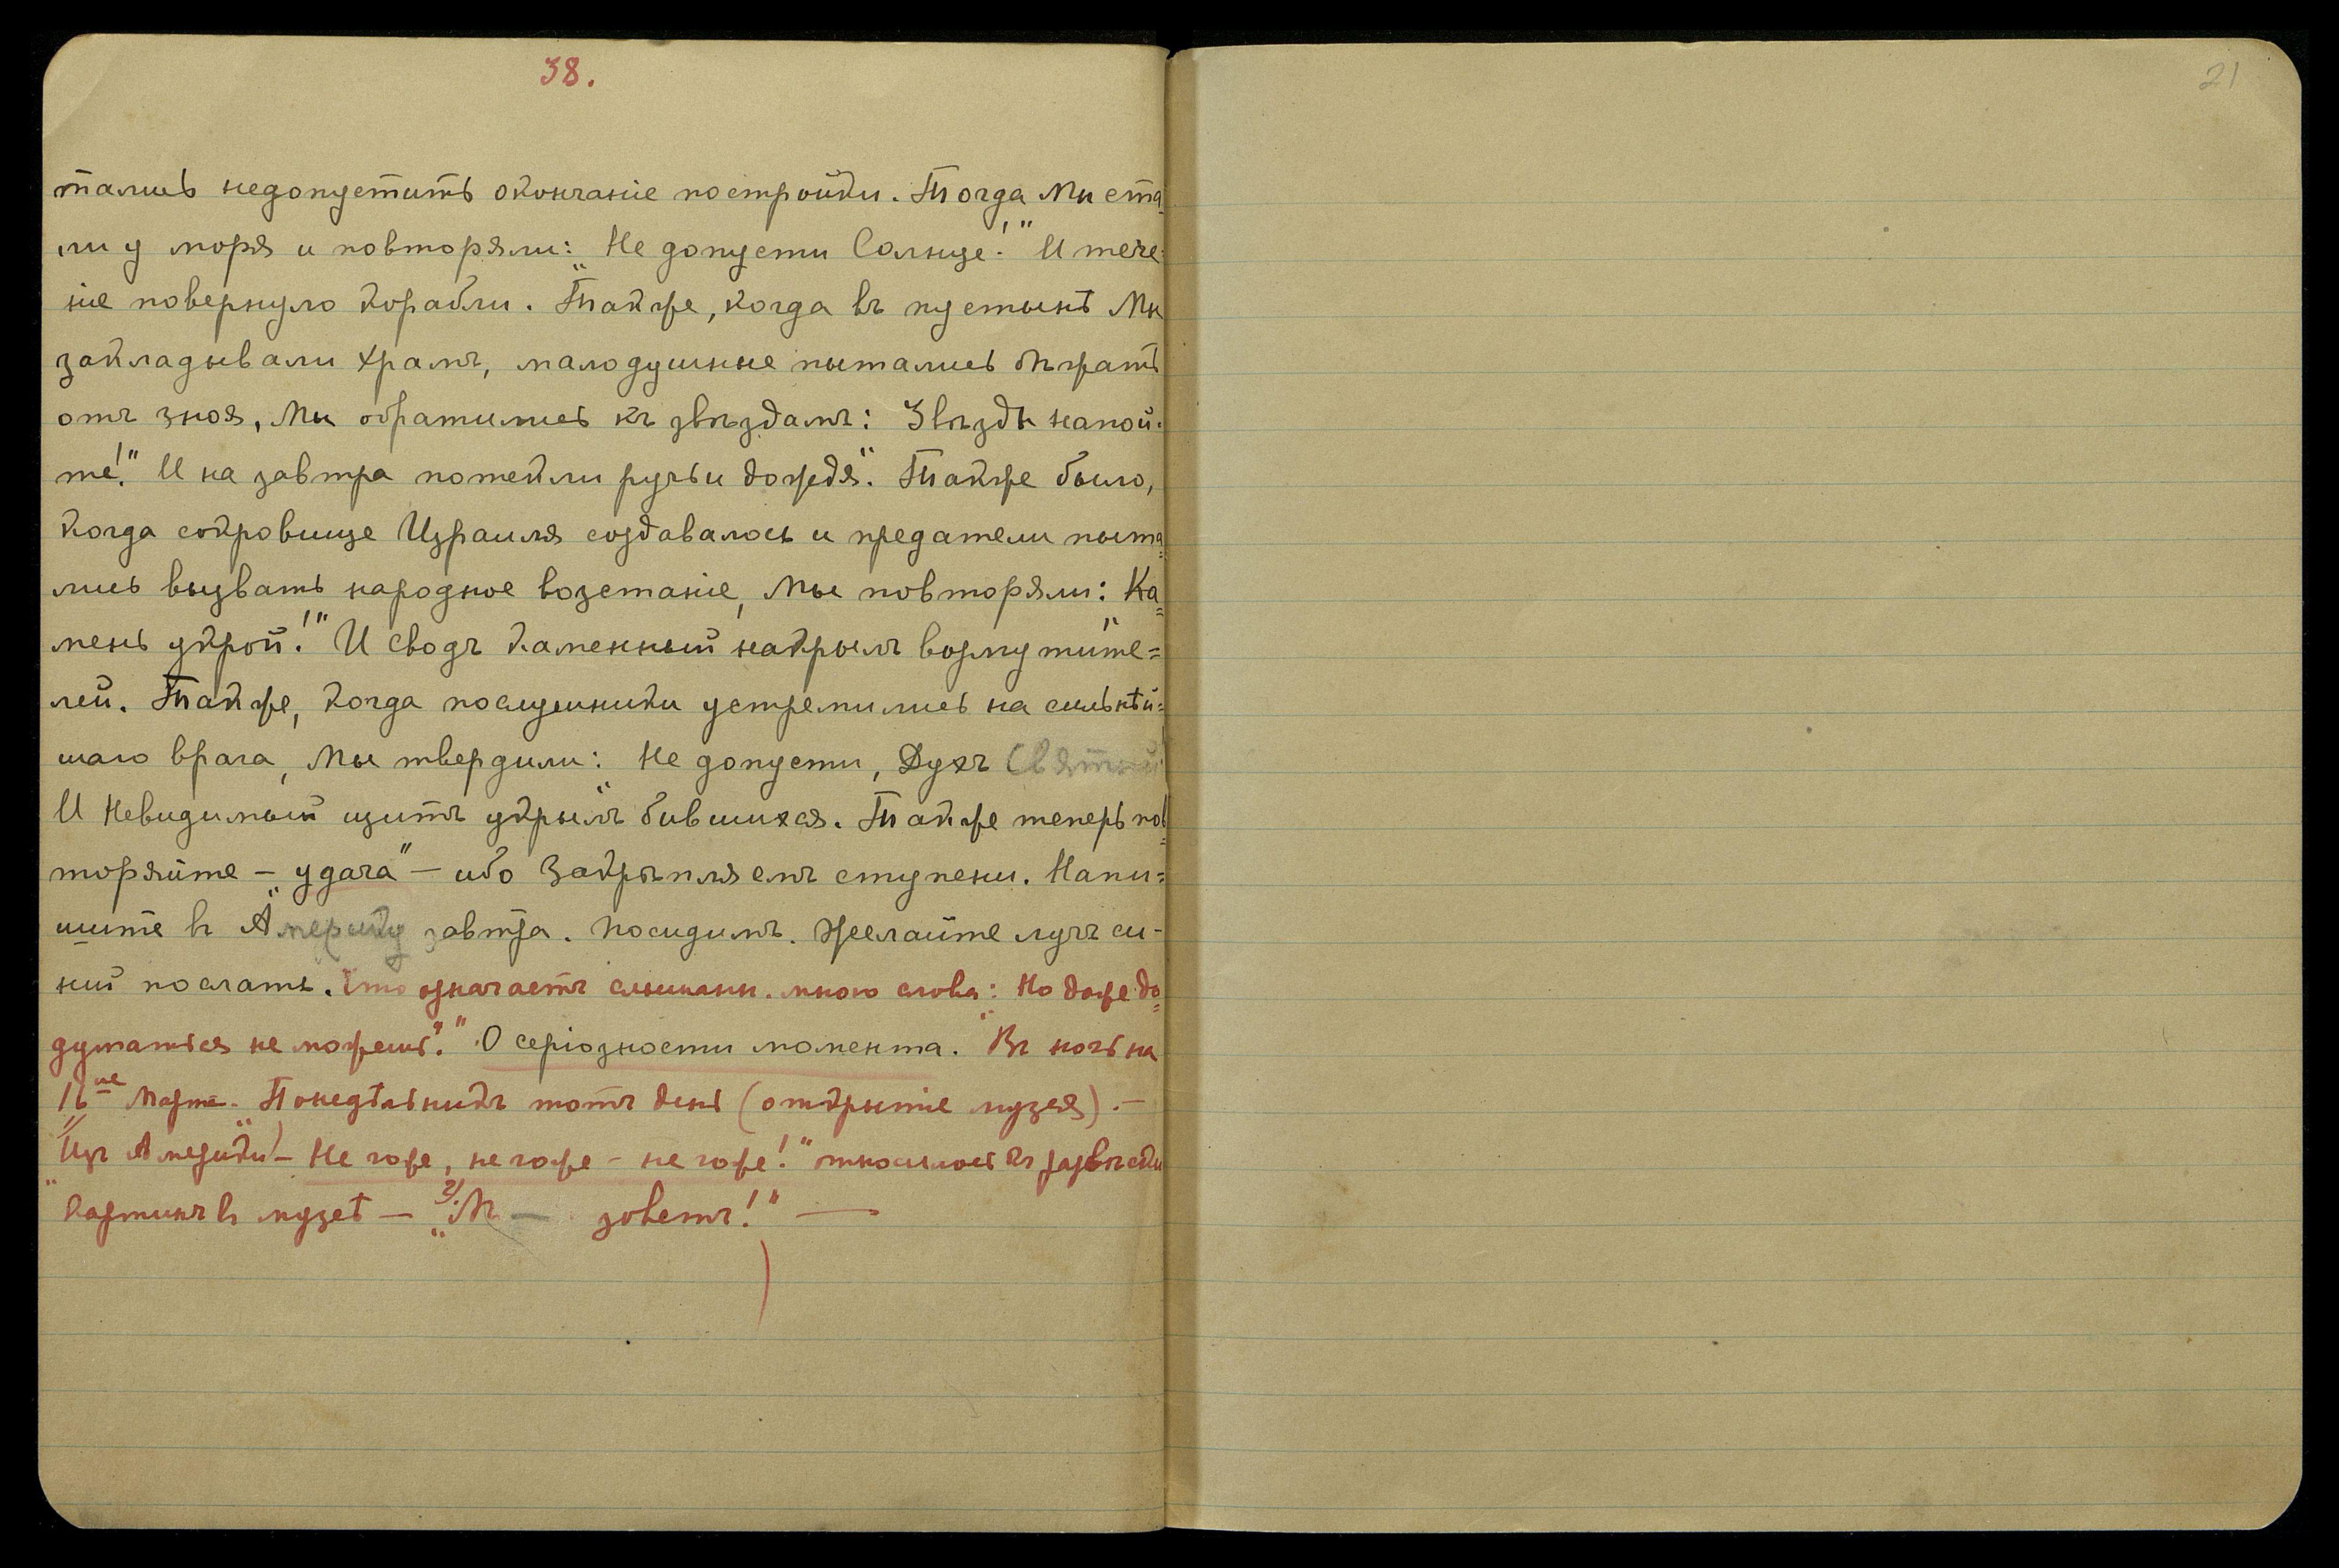 38.
21
тались недопустить окончаніе постройки. Тогда Мы ста-
ли у моря и повторяли: „Не допусти Солнце!" И тече-
ніе повернуло корабли. Также, когда въ пустынѣ Мы
закладывали храмъ, малодушные пытались бѣжать
отъ зноя, Мы обратились къ звѣздамъ: Звѣзды напой-
те!" И на завтра потекли ручьи дождя". Также было,
когда сокровище Израиля создавалось и предатели пыта=
лись вызвать народное возстаніе, Мы повторяли: Ка=
мень укрой!" И сводъ каменный накрылъ возмутите=
лей. Также, когда послушники устремились на сильнѣй=
шаго врага, Мы твердили: Не допусти, Духъ Святый!
И Невидимый щитъ укрылъ бившихся. Также теперь пов=
торяйте — „удача" — ибо Закрѣпляемъ ступени. Напи=
шите въ Америку завтра. Посидимъ. Желайте лучъ си-
ній послать. Что означаетъ слышанн. мною слова: Но даже до=
думаться не можешь"." О серіозности момента. "Въ ночь на
16ое Марта. Понедѣльникъ тотъ день (открытіе музея).—
"Изъ Америки" — Не гоже, не гоже - не гоже!" относилось къ развѣски
картинъ въ музеѣ — 2/. „М. — зоветъ!" —